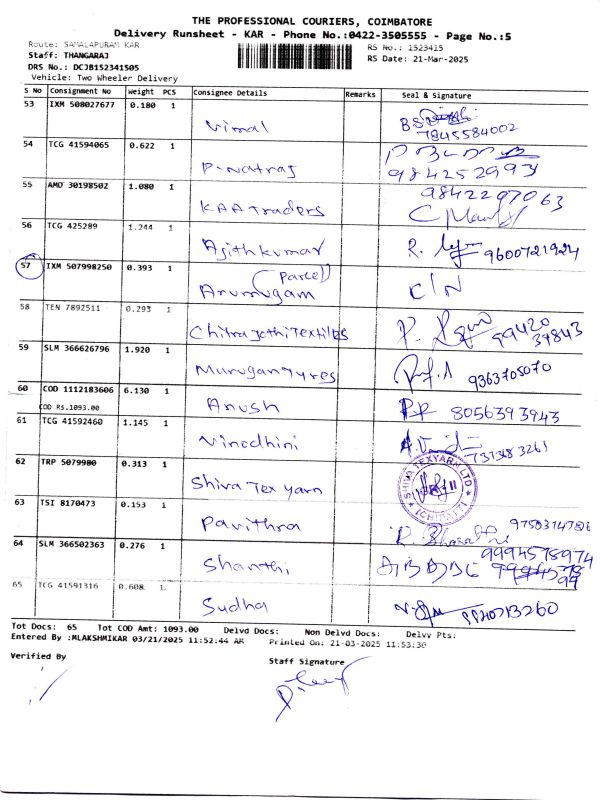 THE PROFESSIONAL COURIERS, COIMBATORE
Delivery Runsheet - KAR - Phone No.:0422-3505555 - Page No.:5
Route: SAMALAPURAM KAR
RS No.: 1523415
Staff: THANGARAJ
RS Date: 21-Mar-2025
DRS No.: DCJB152341505
Vehicle: Two Wheeler Delivery
S No Consignment No Weight PCS Consignee Details Remarks Seal & Signature
53 IXM 508027677 0.180 1 Vimal
7845584002
54 TCG 41594065 0.622 1 P. Natraj
984252993
55 AMD 30198502 1.080 1 KAA Traders 9842297063
56 TCG 425289 1.244 1 Ajith kumar R. 9600721924
57 IXM 507998250 0.393 1 (Parcel)
Arumugam C/N
58 TEN 7892511 0.293 1 Chitrajothi Textiles P. 99420
37843
59 SLM 366626796 1.920 1 Murugan tyres 9363705070
60 COD 1112183606 6.130 1 Anush 8056393943
COD RS.1093.00
61 TCG 41592460 1.145 1 Vinodhini
62 TRP 5079980 0.313 1 Shiva Tex yarn SHIVA TEXYARN LTD
63 TSI 8170473 0.153 1 Pavithra
64 SLM 366502363 0.276 1 Shanthi 9994578974
65 TCG 41591316 0.608 1 Sudha
Tot Docs: 65 Tot COD Amt: 1093.00 Delvd Docs: Non Delvd Docs: Delvv Pts:
Entered By :MLAKSHMIKAR 03/21/2025 11:52:44 AM Printed On: 21-03-2025 11:53:30
Verified By
Staff Signature